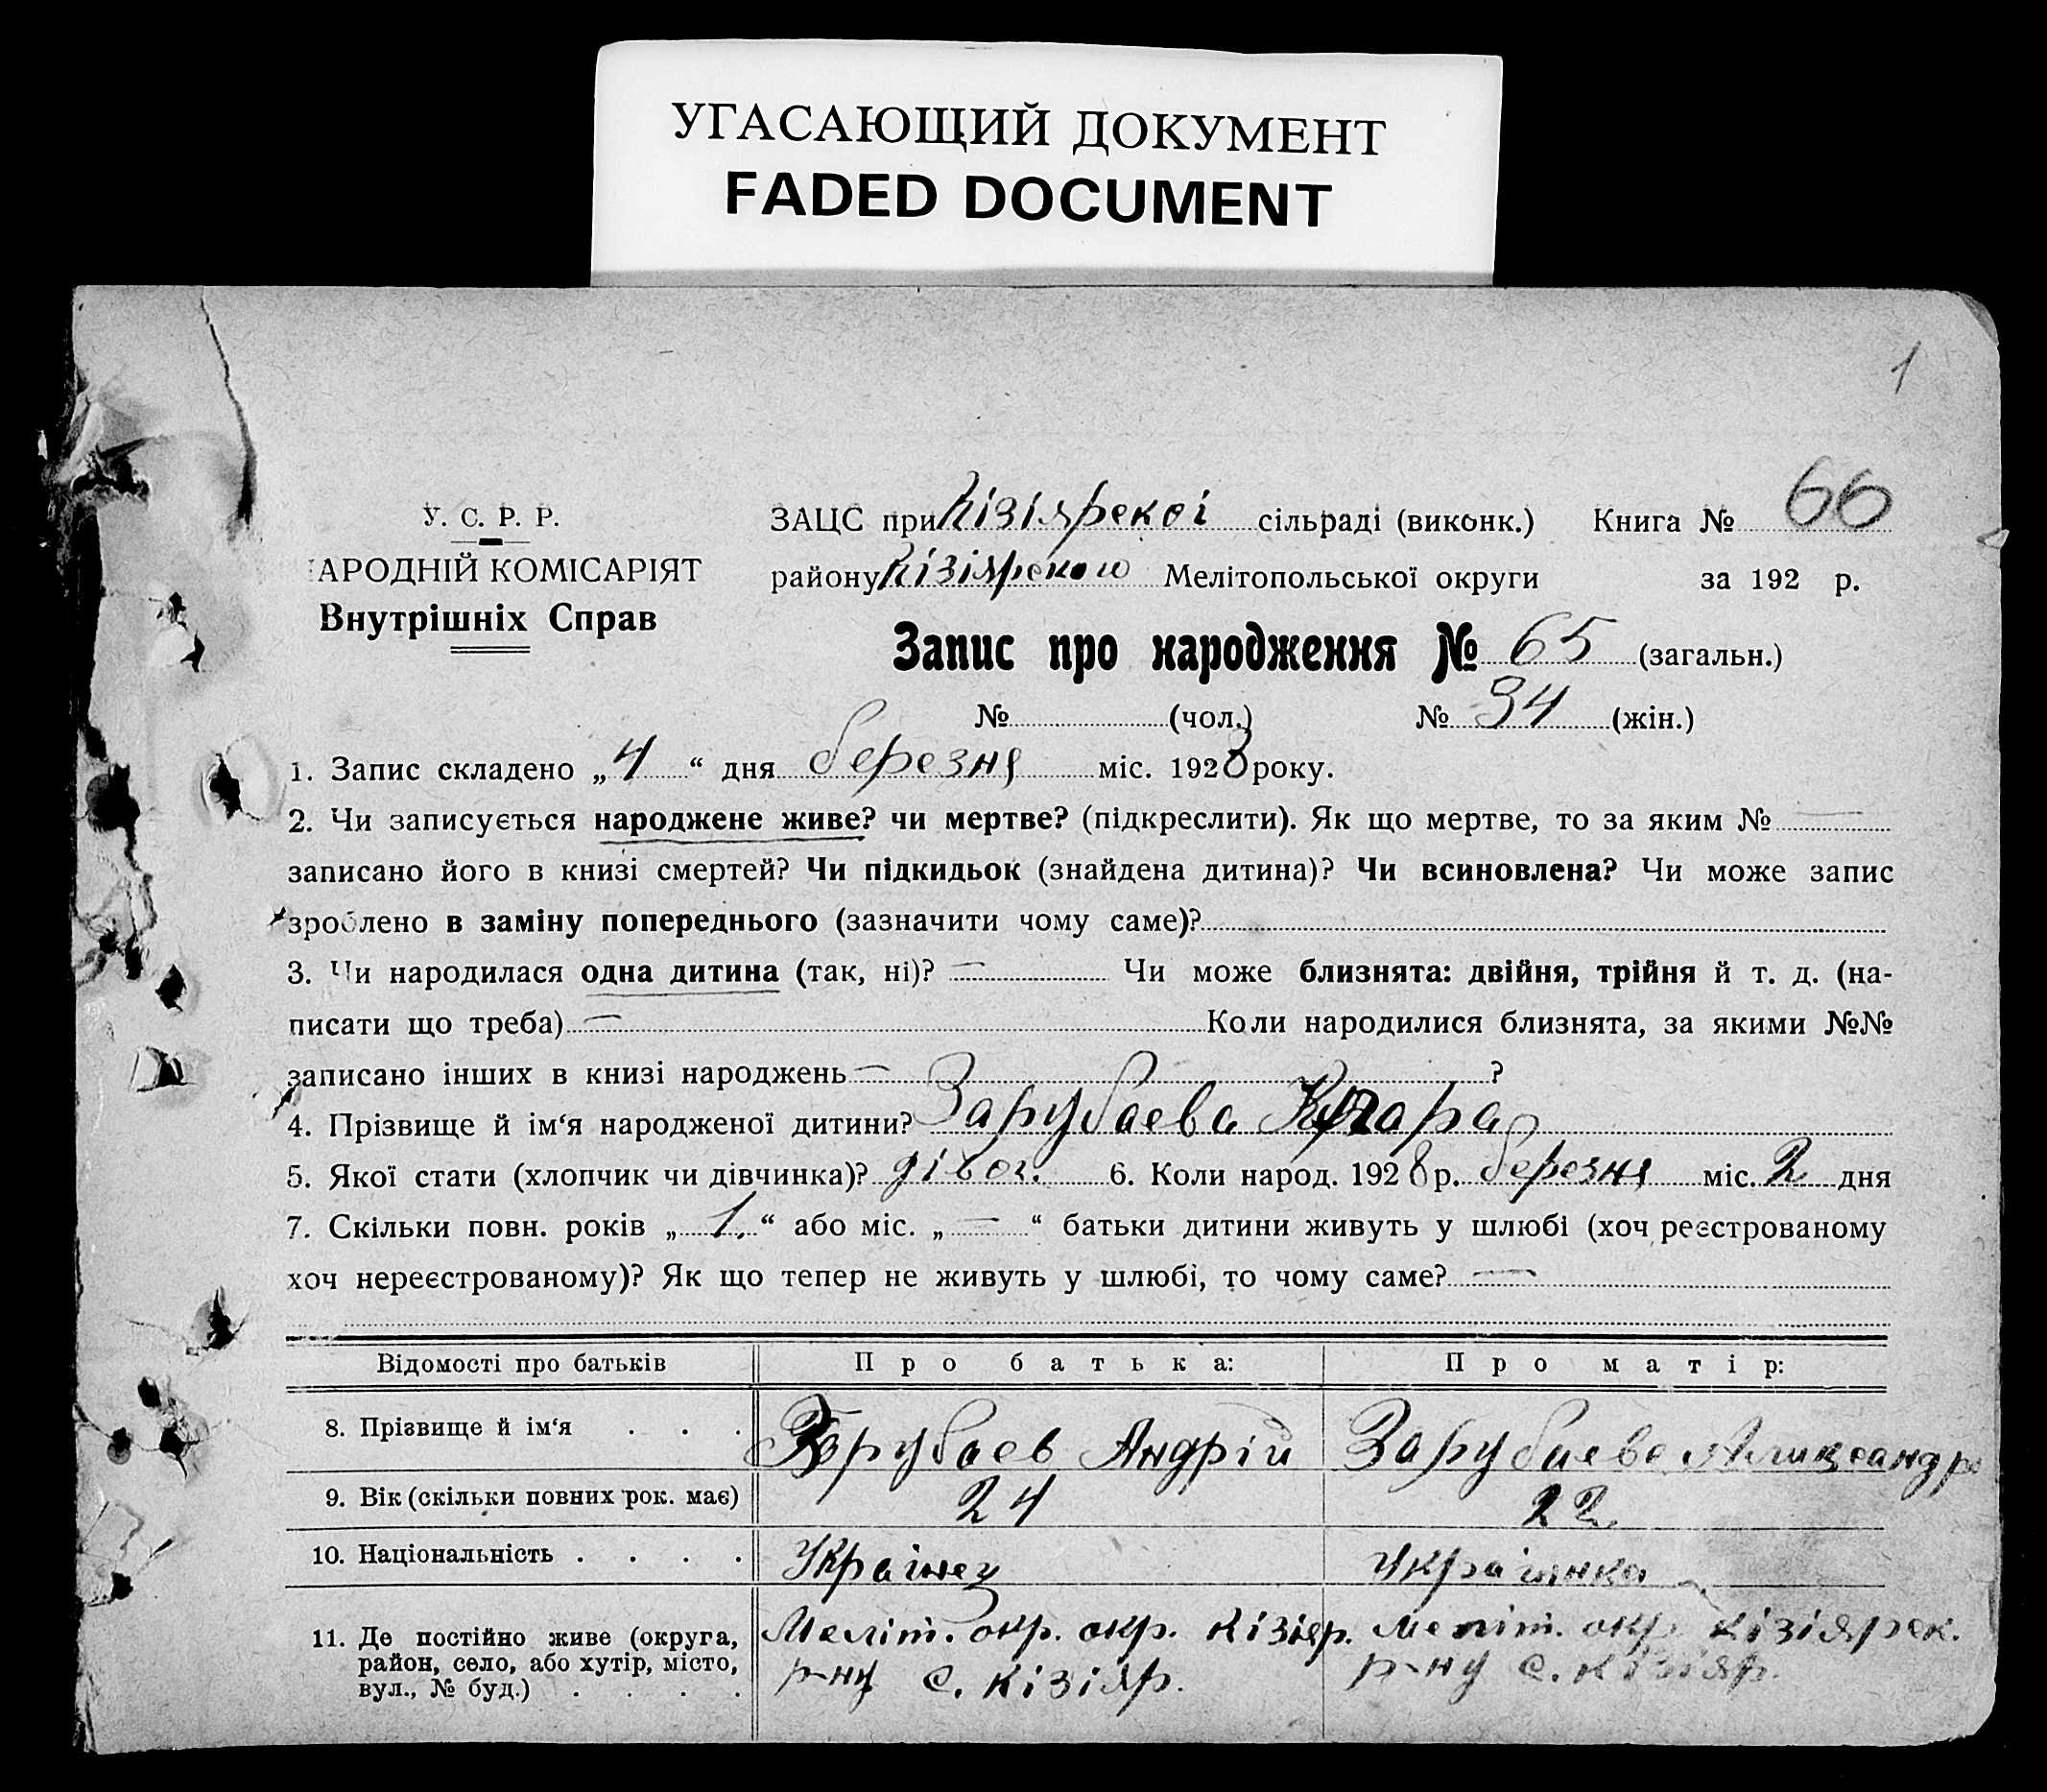 УГАСАЮЩИЙ ДОКУМЕНТ
FADED DOCUMENT
1
У. С. Р. Р.
АРОДНІЙ КОМІСАРІЯТ
Внутрішніх Справ
ЗАЦС при Кізіярскої сільраді (виконк.) Книга № 66
району Кізіярского Мелітопольської округи за 192 р.
Запис про народження № 65 (загальн.)
№ (чол.) № 34 (жін.)
1. Запис складено „4“ дня березня міс. 1928 року.
2. Чи записується народжене живе? чи мертве? (підкреслити). Як що мертве, то за яким № —
записано його в книзі смертей? Чи підкидьок (знайдена дитина)? Чи всиновлена? Чи може запис
зроблено в заміну попереднього (зазначити чому саме)?
3. Чи народилася одна дитина (так, ні)? — Чи може близнята: двійня, трійня й т. д. (на-
писати що треба) — Коли народилися близнята, за якими №№
записано інших в книзі народжень — ?
4. Прізвище й ім‘я народженої дитини? Зарубаева
5. Якої стати (хлопчик чи дівчинка)? дівоч. 6. Коли народ. 1928 р. березня міс. 2 дня
7. Скільки повн. років „1.“ або міс. „—“ батьки дитини живуть у шлюбі (хоч реєстрованому
хоч нереєстрованому)? Як що тепер не живуть у шлюбі, то чому саме? —
Відомості про батьків Про батька: Про матір:
8. Прізвище й ім‘я . . . Зарубаев Андрій Зарубаева
9. Вік (скільки повних рок. має) 24 22
10. Національність . . . . Українец Українка
11. Де постійно живе (округа, район, село, або хутір, місто, вул., № буд.) . . . .
Меліт. окр. окр. Кізіяр. р-ну с. Кізіяр.
Меліт. окр Кізіярск. р-ну с. Кізіяр.